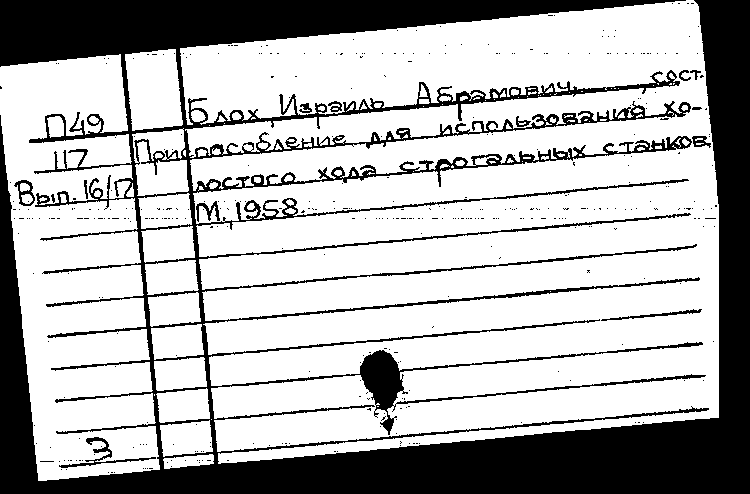 П49 Блох, Израиль Абрамович, сост.
117 Приспособление для использования хо-
Вып. 16/17 лостого хода строгальных станков.
М., 1958.
З